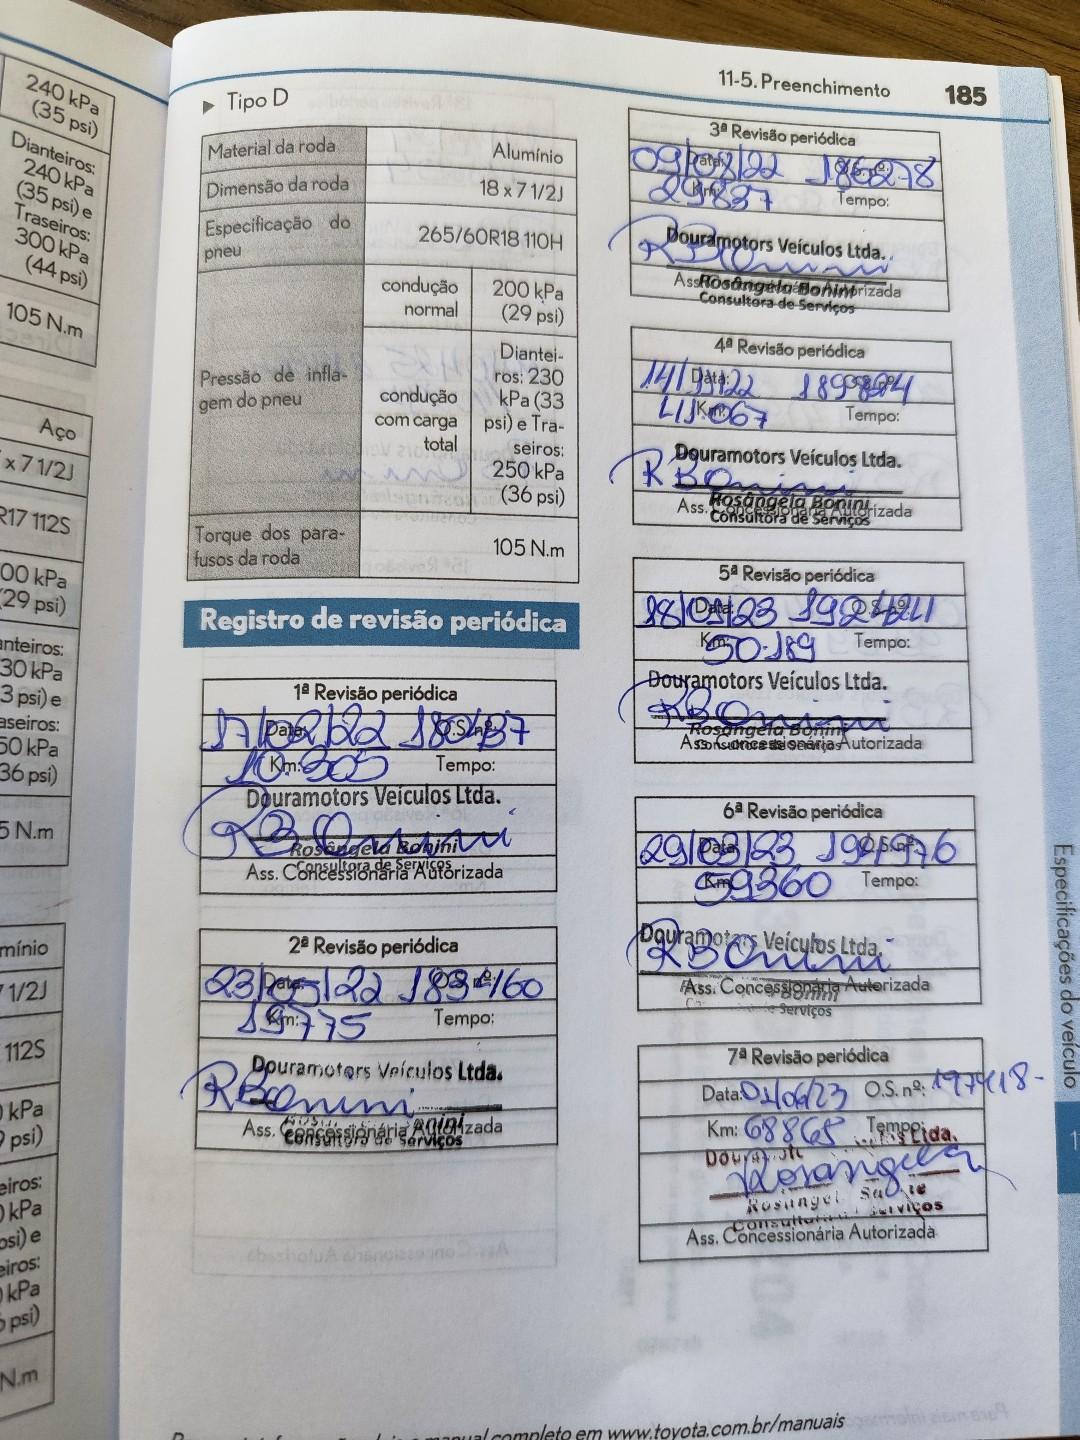 240 kPa
(35 psi)
Dianteiros:
240 kPa
(35 psi) e
Traseiros:
300 kPa
(44 psi)
105 N.m
Aço
x 7 1/2J
R17 112S
00 kPa
(29 psi)
anteiros:
30 kPa
3 psi) e
aseiros:
50 kPa
36 psi)
5 N.m
mínio
7 1/2J
112S
kPa
psi)
eiros:
kPa
psi) e
eiros:
kPa
psi)
N.m
11-5. Preenchimento 185
▶ Tipo D
Material da roda Alumínio
Dimensão da roda 18 x 7 1/2J
Especificação do
pneu
265/60R18 110H
Pressão de infla-
gem do pneu
condução
normal
200 kPa
(29 psi)
condução
com carga
total
Diantei-
ros: 230
kPa (33
psi) e Tra-
seiros:
250 kPa
(36 psi)
Torque dos para-
fusos da roda
105 N.m
Registro de revisão periódica
1ª Revisão periódica
Data: 17/02/22 O.S. nº:
Km: 10.305 Tempo:
Douramotors Veículos Ltda.
RBonini
Rosângela Bonini
Consultora de Serviços
Ass. Concessionária Autorizada
2ª Revisão periódica
Data: 23/05/22 O.S. nº:
Km: 19775 Tempo:
Douramotors Veículos Ltda.
RBonini
Bonini
Consultora de Serviços
Ass. Concessionária Autorizada
3ª Revisão periódica
Data: 09/08/22 O.S. nº: 186278
Km: 29837 Tempo:
Douramotors Veículos Ltda.
RBonini
Rosângela Bonini
Ass. Concessionária Autorizada
Consultora de Serviços
4ª Revisão periódica
Data: 14/11/22 O.S. nº:
Km: 41.067 Tempo:
Douramotors Veículos Ltda.
RBonini
Rosângela Bonini
Ass. Concessionária Autorizada
Consultora de Serviços
5ª Revisão periódica
Data: 18/01/23 O.S. nº:
Km: 50.189 Tempo:
Douramotors Veículos Ltda.
RBonini
Rosângela Bonini
Consultora de Serviços
Ass. Concessionária Autorizada
6ª Revisão periódica
Data: 29/03/23 O.S. nº: 194976
Km: 59360 Tempo:
Douramotors Veículos Ltda.
RBonini
Ass. Concessionária Autorizada
Bonini
Serviços
7ª Revisão periódica
Data: 01/06/23 O.S. nº: 197418-
Km: 68865 Tempo:
Ltda.
Rosangela
Ass. Concessionária Autorizada
Especificações do veículo
manual completo em www.toyota.com.br/manuais